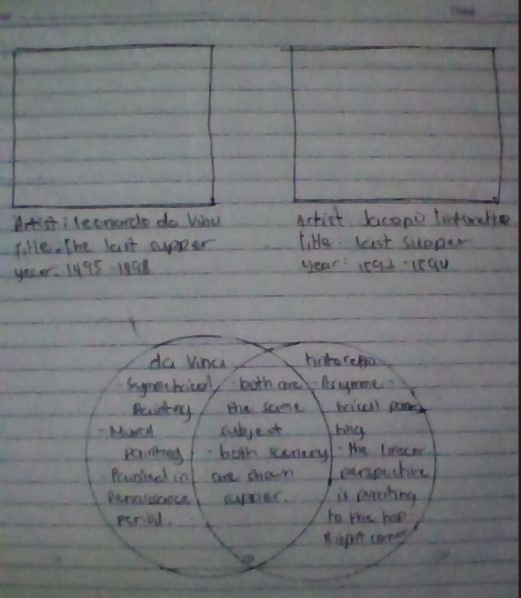 Artist: leonardo da Vinci
Title: The last supper
year: 1495-1498
Artist: Jacopo Tintoretto
Title: last supper
year: 1592-1594
da Vinci
- Symmetrical
Painting
- Mural
painting
- Painted in
Renaissance
period.
- both are
the same
subject
- both scenery
are
supper.
tintoretto
- Asymme-
trical pain-
ting
- the linear
perspective
is pointing
to the top
Right corner